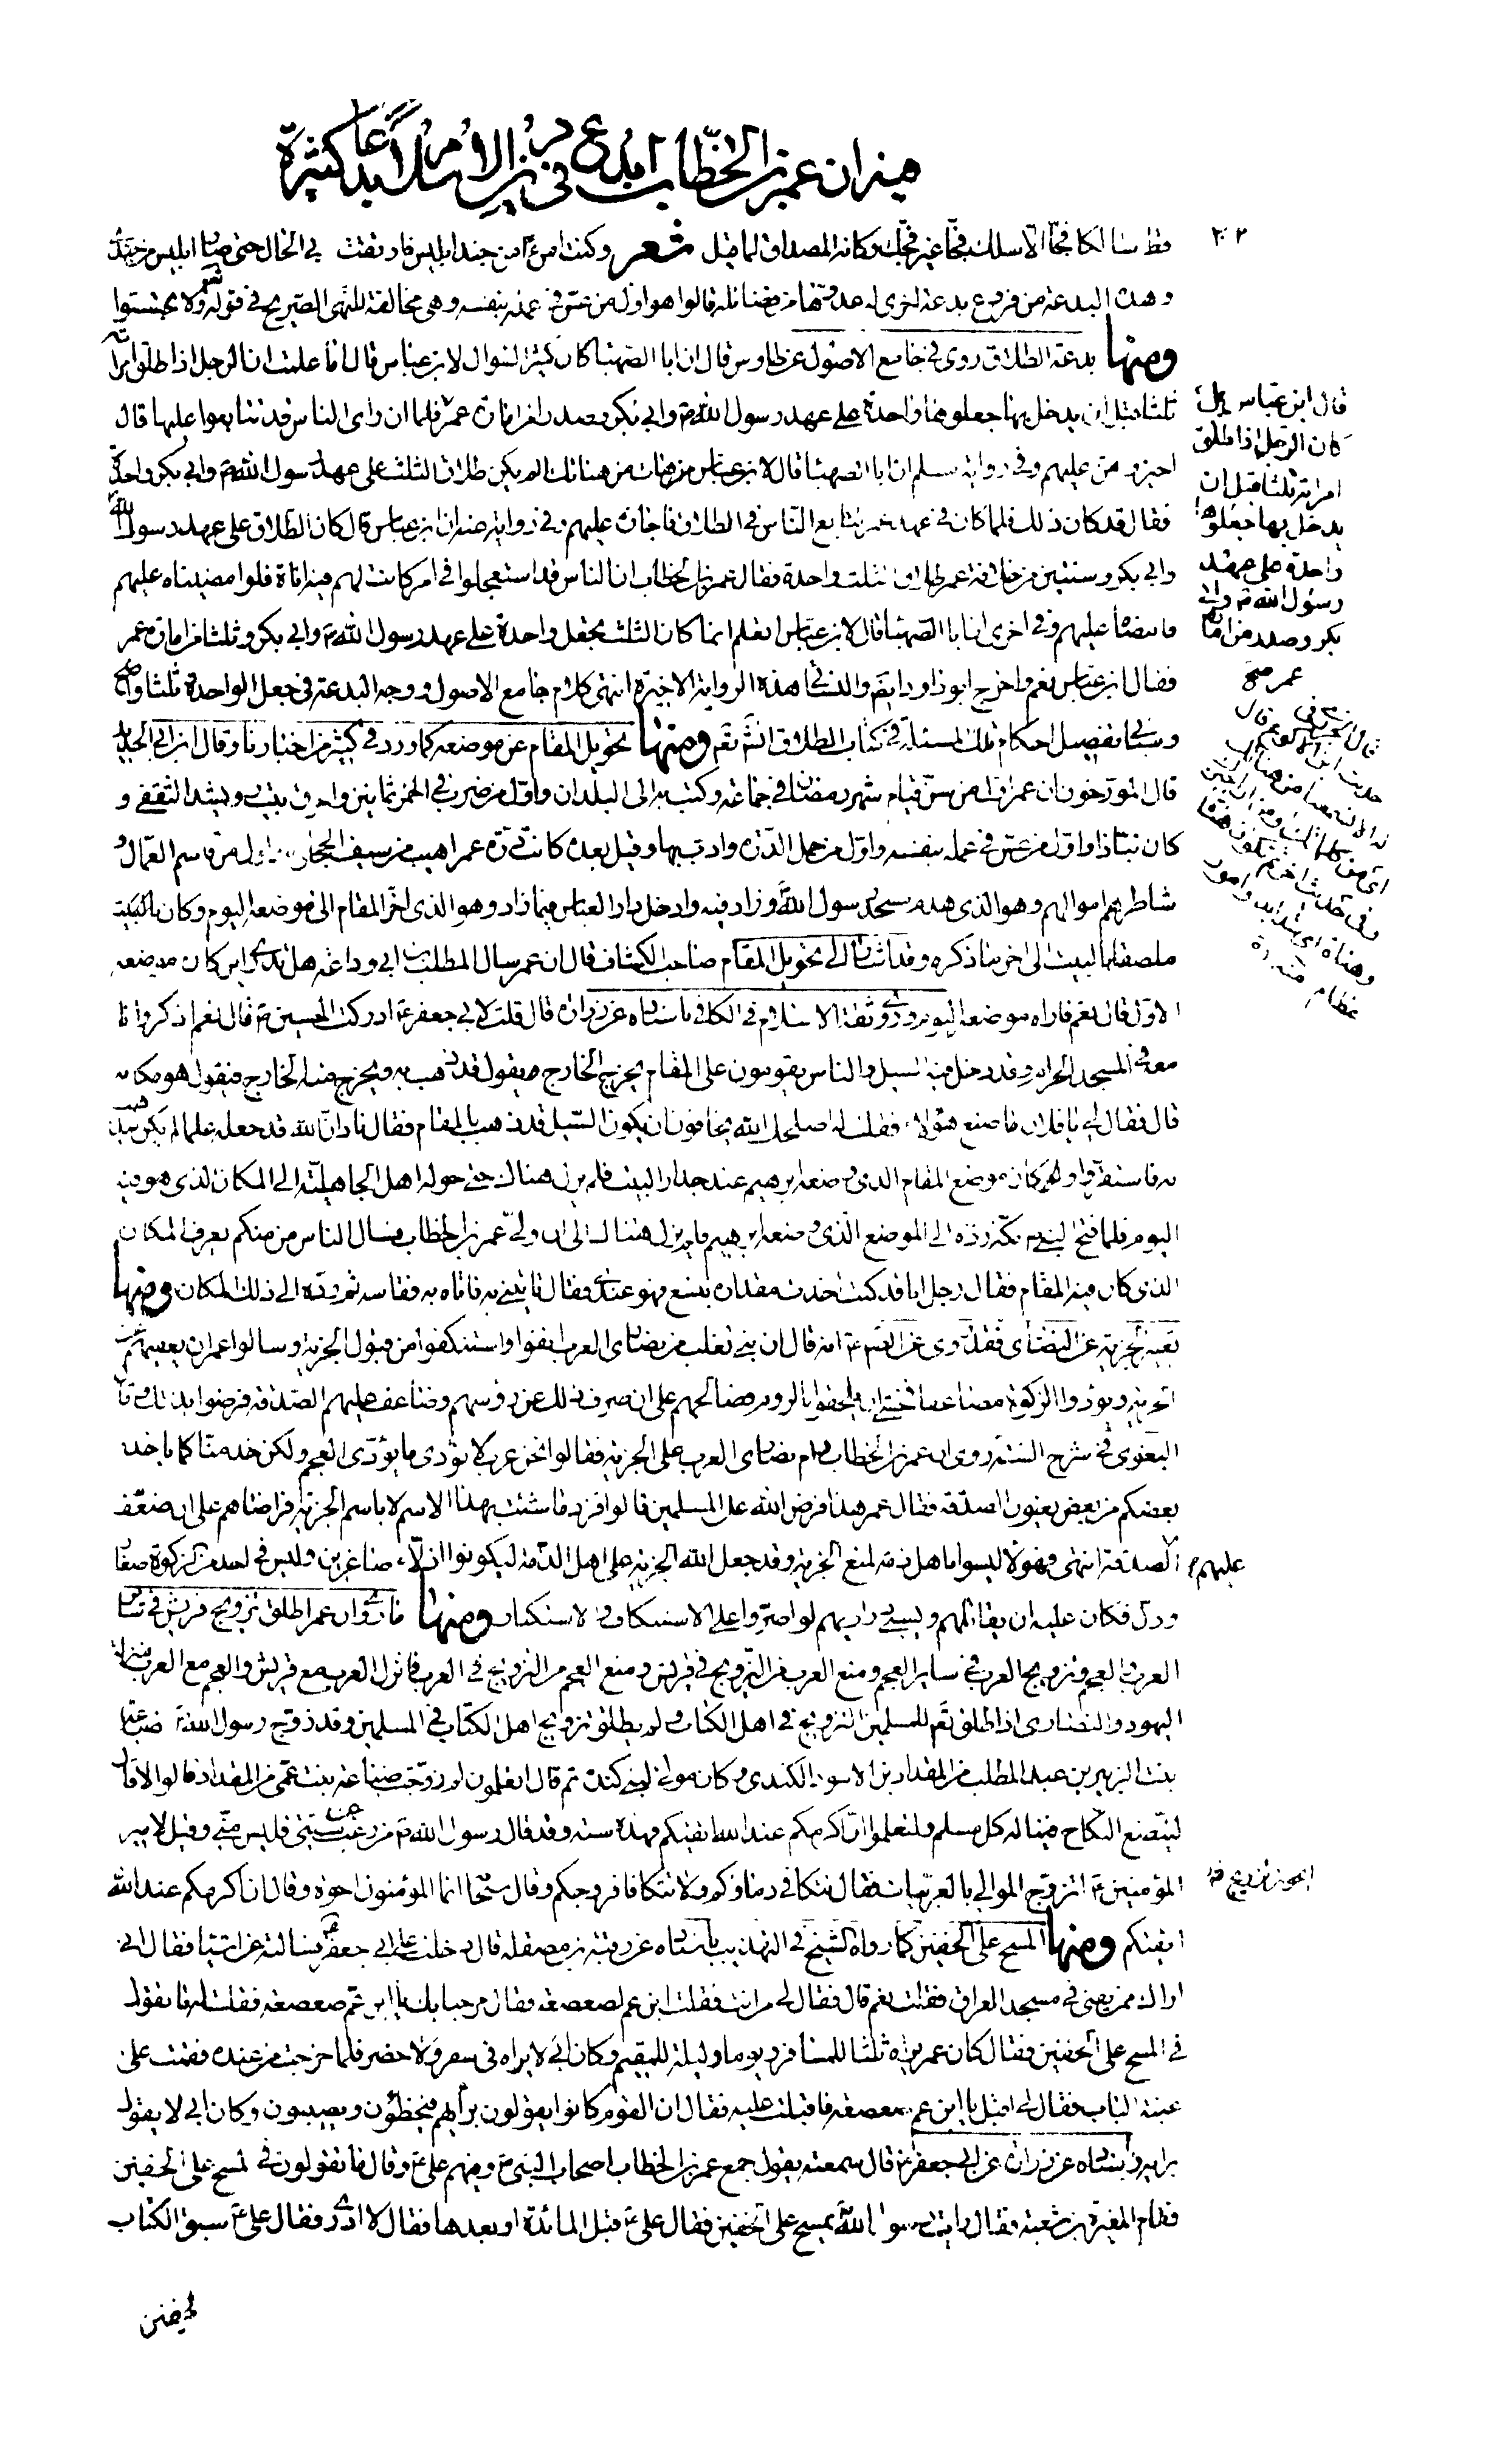 في ان عمر بن الخطاب ابدع في الاسلام بدعا كثيرة
٢٠٢
قط سالكا فجا الا سلك فجا غير فجك وكانه المصداق لما قيل شعر وكنت امرءا من جند ابليس فارتقت بي الحال حتى صار ابليس من جندي
وهذه البدعة من فروع بدعة اخرى له عدوها من فضائله قالوا هو اول من عس في عمله بنفسه وهي مخالفة للنهي الصريح في قوله تعالى ولا تجسسوا
ومنها بدعة الطلاق روى في جامع الاصول عن طاوس قال ان ابا الصهباء كان كثير السؤال لابن عباس قال اما علمت ان الرجل اذا طلق امراته
ثلثا قبل ان يدخل بها جعلوها واحدة على عهد رسول الله ص وابي بكر وصدرا من امارة عمر فلما ان راى الناس قد تتابعوا عليها قال
اجيزوهن عليهم وفي رواية مسلم ان ابا الصهباء قال لابن عباس هات من هناتك الم يكن طلاق الثلث على عهد رسول الله ص وابي بكر واحدة
فقال قد كان ذلك فلما كان في عهد عمر تتابع الناس في الطلاق فاجازه عليهم وفي رواية عنه ان ابن عباس قال كان الطلاق على عهد رسول الله
وابي بكر وسنتين من خلافة عمر طلاق الثلث واحدة فقال عمر بن الخطاب ان الناس قد استعجلوا في امر كانت لهم فيه اناة فلو امضيناه عليهم
فامضاه عليهم وفي اخرى ان ابا الصهباء قال لابن عباس اتعلم انما كان الثلث تجعل واحدة على عهد رسول الله ص وابي بكر وثلثا من امارة عمر
فقال ابن عباس نعم واخرج ابو داود ايضا والنسائي هذه الرواية الاخيرة انتهى كلام جامع الاصول ووجه البدعة في جعل الواحدة ثلثا واضح
وسياتي تفصيل احكام تلك المسئلة في كتاب الطلاق انش تعم ومنها تحويل المقام عن موضعه كما ورد في كثير من اخبارنا وقال ابن ابي الحديد
قال المورخون ان عمر اول من سن قيام شهر رمضان في جماعة وكتب به الى البلدان واول من ضرب في الخمر ثمانين واحرق بيت رويشد الثقفي و
كان نباذا واول من عس في عمله بنفسه واول من حمل الدرة وادب بها وقيل بعده كانت درة عمر اهيب من سيف الحجاج واول من قاسم العمال و
شاطرهم اموالهم وهو الذي هدم مسجد رسول الله ص وزاد فيه وادخل دار العباس فيما زاد وهو الذي اخر المقام الى موضعه اليوم وكان
ملصقا بالبيت الى اخر ما ذكره وقد اشار الى تحويل المقام صاحب الكشاف قال ان عمر سال المطلب بن ابي وداعة هل تدري اين كان موضعه
الاول قال نعم فاراه موضعه اليوم وروى ثقة الاسلام في الكافي باسناده عن زرارة قال قلت لابي جعفر ع ادركت الحسين ع قال نعم اذكر وانا
معه في المسجد الحرام وقد دخل فيه السيل والناس يقومون على المقام يخرج الخارج فيقول قد ذهب به ويخرج منه الخارج فيقول هو مكانه
قال فقال لي يا فلان ما صنع هؤلاء فقلت له اصلحك الله يخافون ان يكون السيل قد ذهب بالمقام فقال ناد ان الله قد جعله علما لم يكن ليذهب
به فاستقروا وكان موضع المقام الذي وضعه ابرهيم عند جدار البيت فلم يزل هناك حتى حوله اهل الجاهلية الى المكان الذي هو فيه
اليوم فلما فتح النبي ص مكة رده الى الموضع الذي وضعه ابرهيم فلم يزل هناك الى ان ولي عمر بن الخطاب فسال الناس من منكم يعرف المكان
الذي كان فيه المقام فقال رجل انا قد كنت اخذت مقداره بنسع فهو عندي فقال ائتني به فاتاه به فقاسه ثم رده الى ذلك المكان ومنها
تغيير الجزية عن النصارى فقد روي عن الصم ع انه قال ان بني تغلب من نصارى العرب انفوا واستنكفوا من قبول الجزية وسالوا عمر ان يعفيهم عن
الجزية ويودوا الزكوة مضاعفا فخشي ان يلحقوا بالروم فصالحهم على ان صرف ذلك عن رؤسهم وضاعف عليهم الصدقة فرضوا بذلك وقال
البغوي في شرح السنة روي ان عمر بن الخطاب رام نصارى العرب على الجزية فقالوا نحن عرب لا نؤدي ما يؤدي العجم ولكن خذ منا كما ياخذ
بعضكم من بعض يعنون الصدقة فقال عمر هذا فرض الله على المسلمين قالوا فزد ما شئت بهذا الاسم لا باسم الجزية فراضاهم على ان ضعف
عليهم الصدقة انتهى فهؤلاء ليسوا باهل ذمة لمنع الجزية وقد جعل الله الجزية على اهل الذمة ليكونوا اذلاء صاغرين وليس في احد من الزكوة صغار
وذل فكان عليه ان يقاتلهم ويسبي ذراريهم لو اصروا على الاستنكاف والاستكبار ومنها ما روي ان عمر اطلق تزويج قريش في سائر
العرب والعجم وتزويج العرب في ساير العجم ومنع العرب من التزويج في قريش ومنع العجم من التزويج في العرب فانزل العرب مع قريش والعجم مع العرب منزلة
اليهود والنصارى اذ اطلق تعم للمسلمين التزويج في اهل الكتاب ولم يطلق تزويج اهل الكتاب في المسلمين وقد زوج رسول الله ص ضباعة
بنت الزبير بن عبد المطلب من المقداد بن الاسود الكندي وكان مولى لبني كندة ثم قال اتعلمون لم زوجت ضباعة بنت عمي من المقداد قالوا لا قال
ليتضع النكاح فيناله كل مسلم ولتعلموا ان اكرمكم عند الله اتقيكم فهذه سنة وقد قال رسول الله ص من رغب عن سنتي فليس مني وقيل لامير
المؤمنين ع اتزوج الموالي بالعربيات فقال تتكافى دماؤكم ولا تتكافا فروجكم وقال سبحانه انما المؤمنون اخوة وقال ان اكرمكم عند الله
اتقيكم ومنها المسح على الخفين كما رواه الشيخ في التهذيب باسناده عن رقبة بن مصقلة قال دخلت على ابي جعفر ع فسالته عن اشياء فقال اني
اراك ممن يفتي في مسجد العراق فقلت نعم قال فقال لي من انت فقلت ابن عم لصعصعة فقال مرحبا بك يا ابن عم صعصعة فقلت له ما تقول
في المسح على الخفين فقال كان عمر يراه ثلثا للمسافر ويوما وليلة للمقيم وكان ابي لا يراه في سفر ولا حضر فلما خرجت من عنده فقمت على
عتبة الباب فقال لي اقبل يا ابن عم صعصعة فاقبلت عليه فقال ان القوم كانوا يقولون برأيهم فيخطؤن ويصيبون وكان ابي لا يقول
برايه وباسناده عن زرارة عن ابي جعفر ع قال سمعته يقول جمع عمر بن الخطاب اصحاب النبي ص وفيهم علي ع وقال ما تقولون في المسح على الخفين
فقام المغيرة بن شعبة فقال رايت رسول الله ص يمسح على الخفين فقال علي ع قبل المائدة او بعدها فقال لا ادري فقال علي ع سبق الكتاب
الخفين
قال ابن عباس بلى
كان الرجل اذا طلق
امراته ثلثا قبل ان
يدخل بها جعلوها
واحدة على عهد
رسول الله ص وابي
بكر وصدرا من امارة
عمر صح